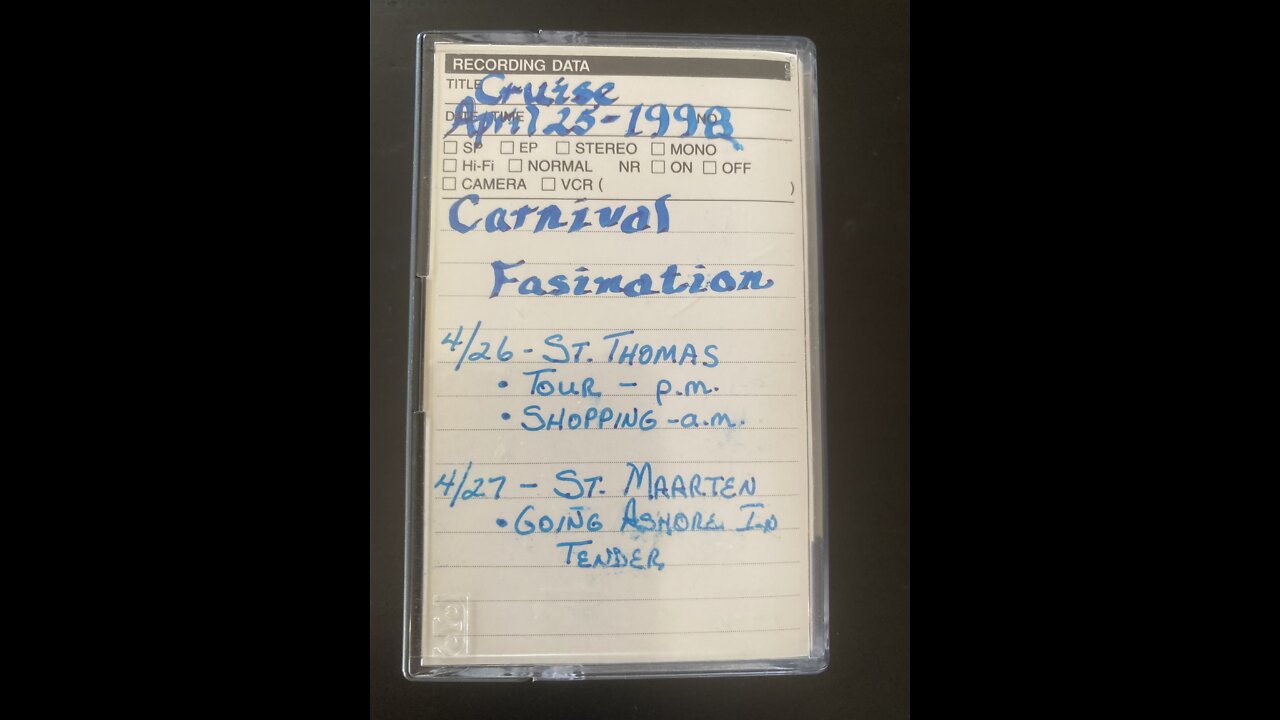 RECORDING DATA
TITLE Cruise
DATE / TIME NO.
April 25-1998
☐ SP ☐ EP ☐ STEREO ☐ MONO
☐ Hi-Fi ☐ NORMAL NR ☐ ON ☐ OFF
☐ CAMERA ☐ VCR ( )
Carnival
Fasination
4/26 - ST. THOMAS
• TOUR - p.m.
• SHOPPING - a.m.
4/27 - ST. MAARTEN
• GOING ASHORE IN
TENDER